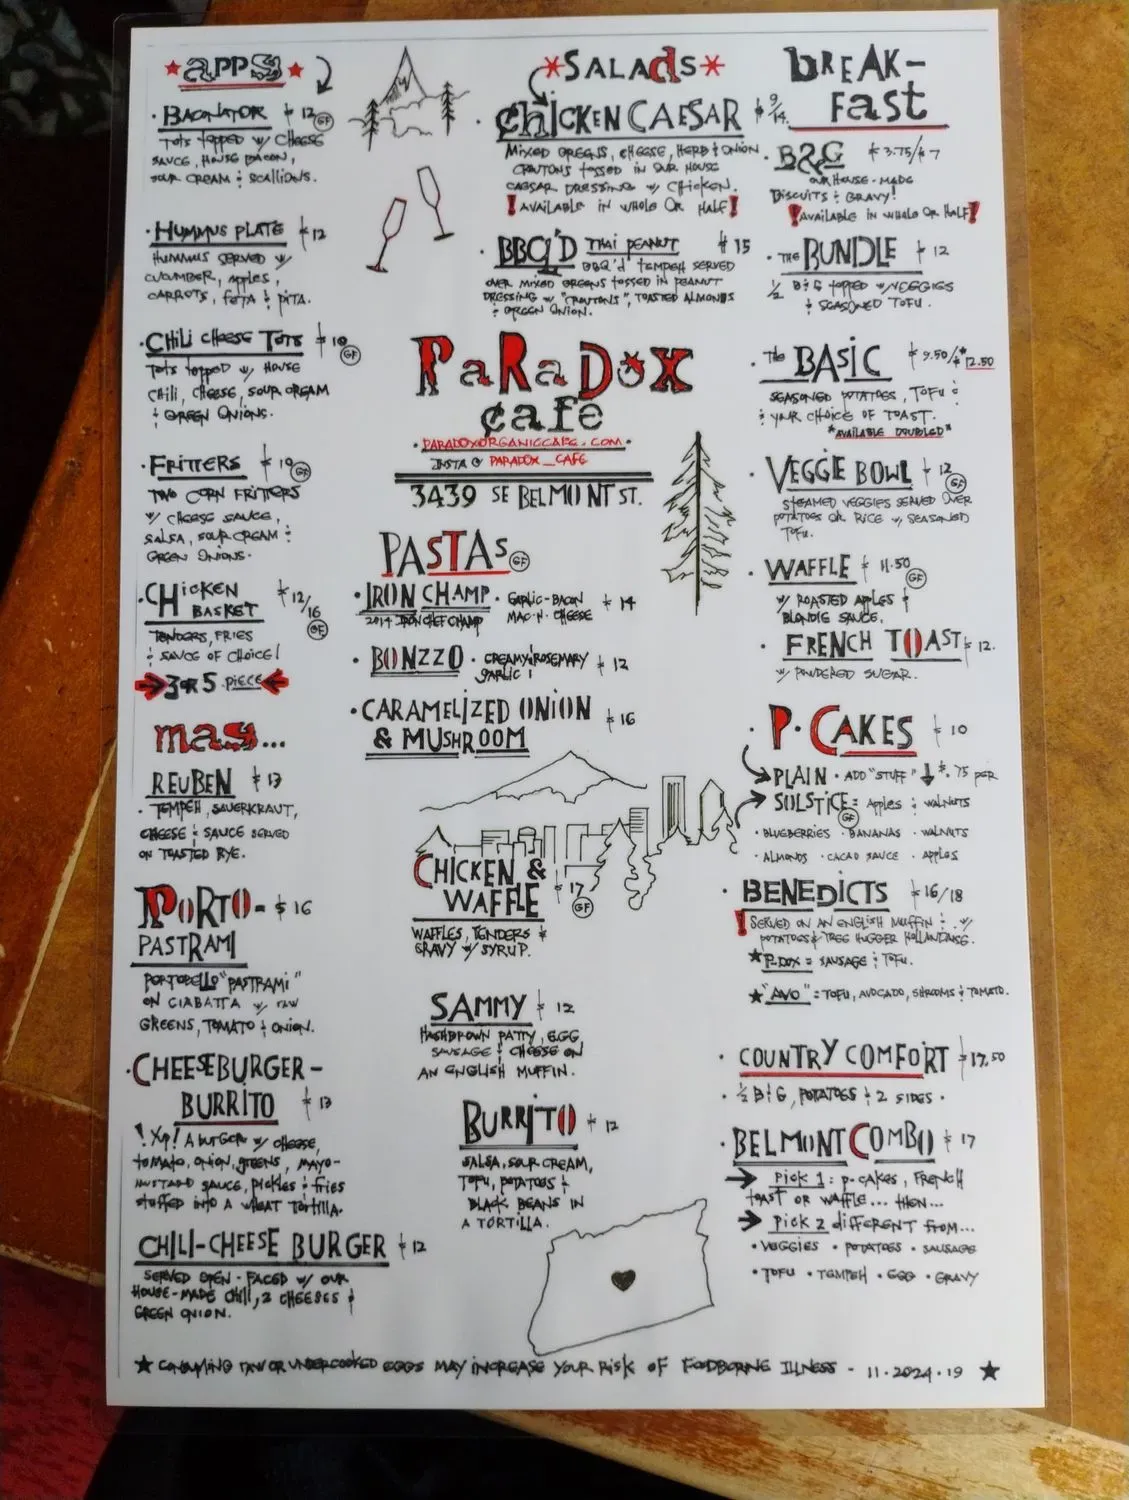 apps
BACONATOR $12 GF
TOTS TOPPED W/ CHEESE
SAUCE, HOUSE BACON,
SOUR CREAM & SCALLIONS.
HUMMUS PLATE $12
HUMMUS SERVED W/
CUCUMBER, APPLES,
CARROTS, FETA & PITA.
CHILI CHEESE TOTS $10 GF
TOTS TOPPED W/ HOUSE
CHILI, CHEESE, SOUR CREAM
& GREEN ONIONS.
FRITTERS $10 GF
TWO CORN FRITTERS
W/ CHEESE SAUCE,
SALSA, SOUR CREAM &
GREEN ONIONS.
CHICKEN
BASKET $12/16 GF
TENDERS, FRIES
& SAUCE OF CHOICE!
3 OR 5 PIECE
mas...
REUBEN $13
TEMPEH, SAUERKRAUT,
CHEESE & SAUCE SERVED
ON TOASTED RYE.
PORTO- $16
PASTRAMI
PORTOBELLO "PASTRAMI"
ON CIABATTA W/ RAW
GREENS, TOMATO & ONION.
CHEESEBURGER-
BURRITO $13
! YUP! A BURGER W/ CHEESE,
TOMATO, ONION, GREENS, MAYO-
MUSTARD SAUCE, PICKLES & FRIES
STUFFED INTO A WHEAT TORTILLA.
CHILI-CHEESE BURGER $12
SERVED OPEN-FACED W/ OUR
HOUSE-MADE CHILI, 2 CHEESES &
GREEN ONION.
*SALADS*
CHICKEN CAESAR $9/14.
MIXED GREENS, CHEESE, HERB & ONION
CROUTONS TOSSED IN OUR HOUSE
CAESAR DRESSING W/ CHICKEN.
! AVAILABLE IN WHOLE OR HALF!
BBQ'D THAI PEANUT $15
BBQ'd TEMPEH SERVED
OVER MIXED GREENS TOSSED IN PEANUT
DRESSING W/ "CROUTONS", TOASTED ALMONDS
& GREEN ONION.
PARADOX
cafe
PARADOXORGANICCAFE.COM
INSTA @ PARADOX_CAFE
3439 SE BELMONT ST.
PASTAS GF
IRON CHAMP · GARLIC-BACON $14
2014 IRON CHEF CHAMP MAC-N-CHEESE
BONZZO · CREAMY ROSEMARY $12
GARLIC!
CARAMELIZED ONION $16
& MUSHROOM
CHICKEN &
WAFFLE $17 GF
WAFFLES, TENDERS &
GRAVY W/ SYRUP.
SAMMY $12
HASHBROWN PATTY, EGG,
SAUSAGE & CHEESE ON
AN ENGLISH MUFFIN.
BURRITO $12
SALSA, SOUR CREAM,
TOFU, POTATOES &
BLACK BEANS IN
A TORTILLA.
BREAK-
FAST
B&G $3.75/$7
OUR HOUSE-MADE
BISCUITS & GRAVY!
! AVAILABLE IN WHOLE OR HALF!
THE BUNDLE $12
1/2 B&G TOPPED W/ VEGGIES
& SEASONED TOFU.
THE BASIC $9.50/*12.50
SEASONED POTATOES, TOFU &
& YOUR CHOICE OF TOAST.
*AVAILABLE DOUBLED*
VEGGIE BOWL $12 GF
STEAMED VEGGIES SERVED OVER
POTATOES OR RICE W/ SEASONED
TOFU.
WAFFLE $11.50 GF
W/ ROASTED APPLES &
BLONDIE SAUCE.
FRENCH TOAST $12.
W/ POWDERED SUGAR.
P-CAKES $10
PLAIN · ADD "STUFF" $.75 PER
SOLSTICE = APPLES & WALNUTS
GF
· BLUEBERRIES · BANANAS · WALNUTS
· ALMONDS · CACAO SAUCE · APPLES
BENEDICTS $16/18
! SERVED ON AN ENGLISH MUFFIN & W/
POTATOES & TREE HUGGER HOLLANDAISE.
★ P-DOX = SAUSAGE & TOFU.
★ "AVO" = TOFU, AVOCADO, SHROOMS & TOMATO.
COUNTRY COMFORT $17.50
· 1/2 B&G, POTATOES & 2 SIDES ·
BELMONT COMBO $17
PICK 1: P-CAKES, FRENCH
TOAST OR WAFFLE... THEN...
PICK 2 DIFFERENT FROM...
· VEGGIES · POTATOES · SAUSAGE
· TOFU · TEMPEH · EGG · GRAVY
★ CONSUMING RAW OR UNDERCOOKED EGGS MAY INCREASE YOUR RISK OF FOODBORNE ILLNESS - 11·2024·19 ★